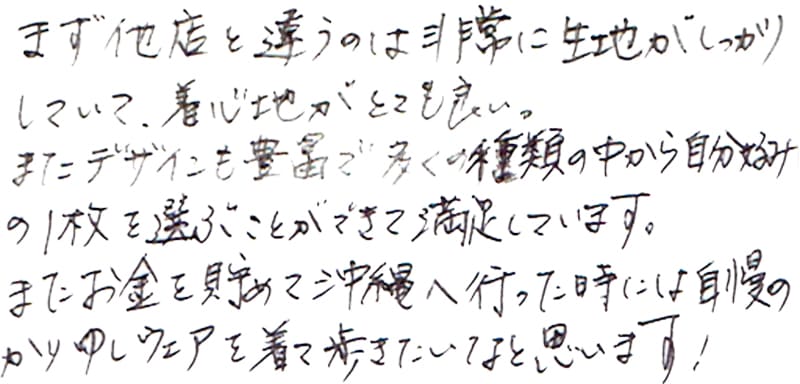 まず他店と違うのは非常に生地がしっかり
していて、着心地がとても良い。
またデザインも豊富で多くの種類の中から自分好み
の1枚を選ぶことができて満足しています。
またお金を貯めて沖縄へ行った時には自慢の
かりゆしウェアを着て歩きたいなと思います!